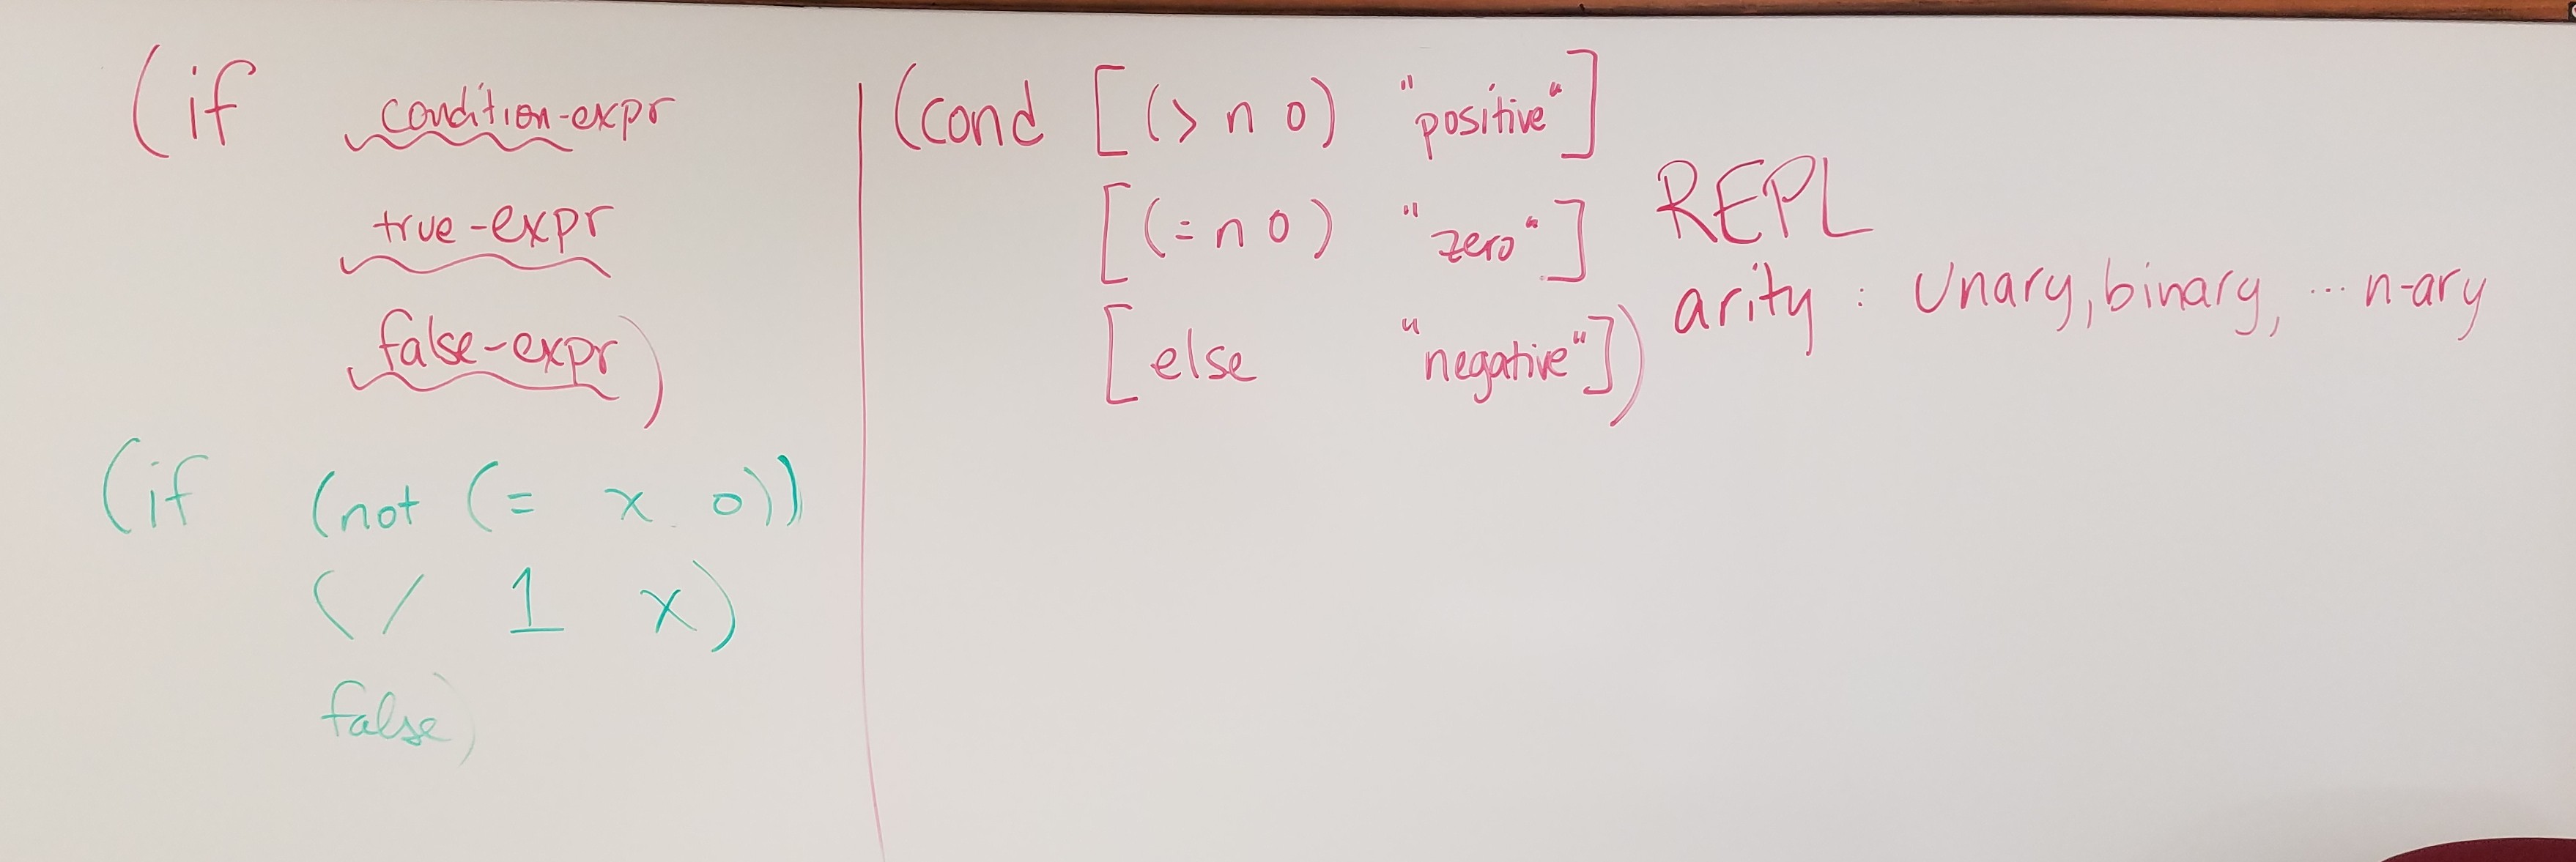 (if condition-expr
true-expr
false-expr)
(if (not (= x 0))
(/ 1 x)
false)
(cond [(> n 0) "positive"]
[(= n 0) "zero"]
[else "negative"])
REPL
arity : Unary, binary, ... n-ary